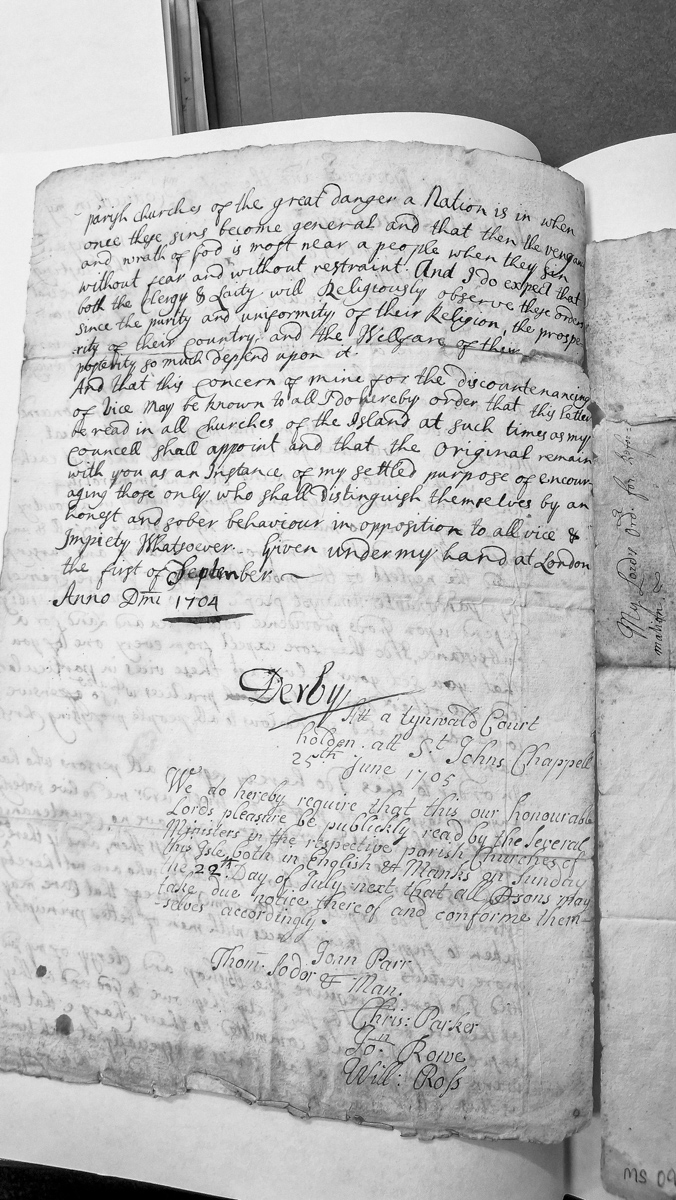 parish churches of the great danger a Nation is in when
once these sins become general and that then the vengan
and wrath of God is most near a people when they sin
without fear and without restraint. And I do expect that
both the Clergy & Laity will Religiously observe these orders
since the purity and uniformity of their Religion, the prospe-
rity of their country, and the Wellfare of their
posterity so much depend upon it.
And that this concern of mine for the discountenancing
of Vice may be known to all I do hereby order that this Letter
be read in all Churches of the Island at such times as my
Councell shall appoint and that the Original remain
with you as an Instance of my settled purpose of encour-
aging those only, who shall distinguish themselves by an
honest and sober behaviour in opposition to all vice &
Impiety Whatsoever. Given under my hand at London
the first of September
Anno Dmi 1704
Derby
Att a Tynwald Court
holden att St Johns Chappell
25th June 1705
We do hereby require that this our honourable
Lords pleasure be publickly read by the several
Ministers in the respective parish Churches of
this Isle both in English & Manks on Sunday
the 22th Day of July next that all psons may
take due notice thereof and conforme them-
-selves accordingly.
John Parr
Thom. Sodor & Man.
Chris: Parker
Jo: Rowe
Will: Ross
My Lords Ord. for
mation
MS 09